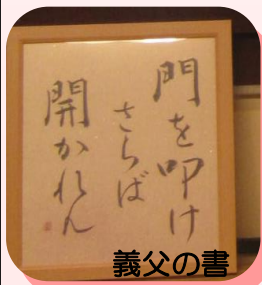 門を叩け
さらば
開かれん
義父の書